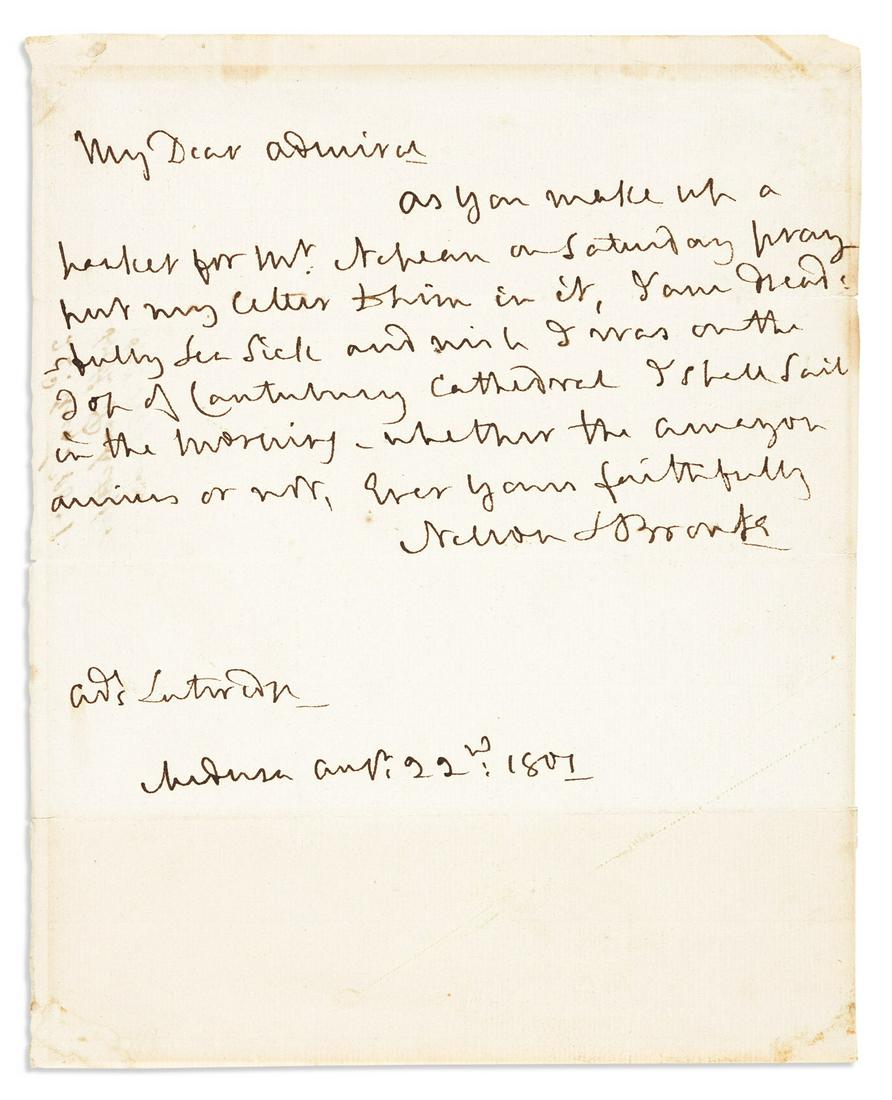 My Dear Admiral
as you make up a
packet for Mr. Nepean on Saturday pray
put my letter to him in it, I am dread=
=fully Sea Sick and wish I was on the
Top of Canterbury Cathedral I shall Sail
in the Morning - whether the Amazon
arrives or not, Ever yours faithfully
Nelson & Bronte
Adl: Lutwidge
Medusa Augt: 22nd: 1801